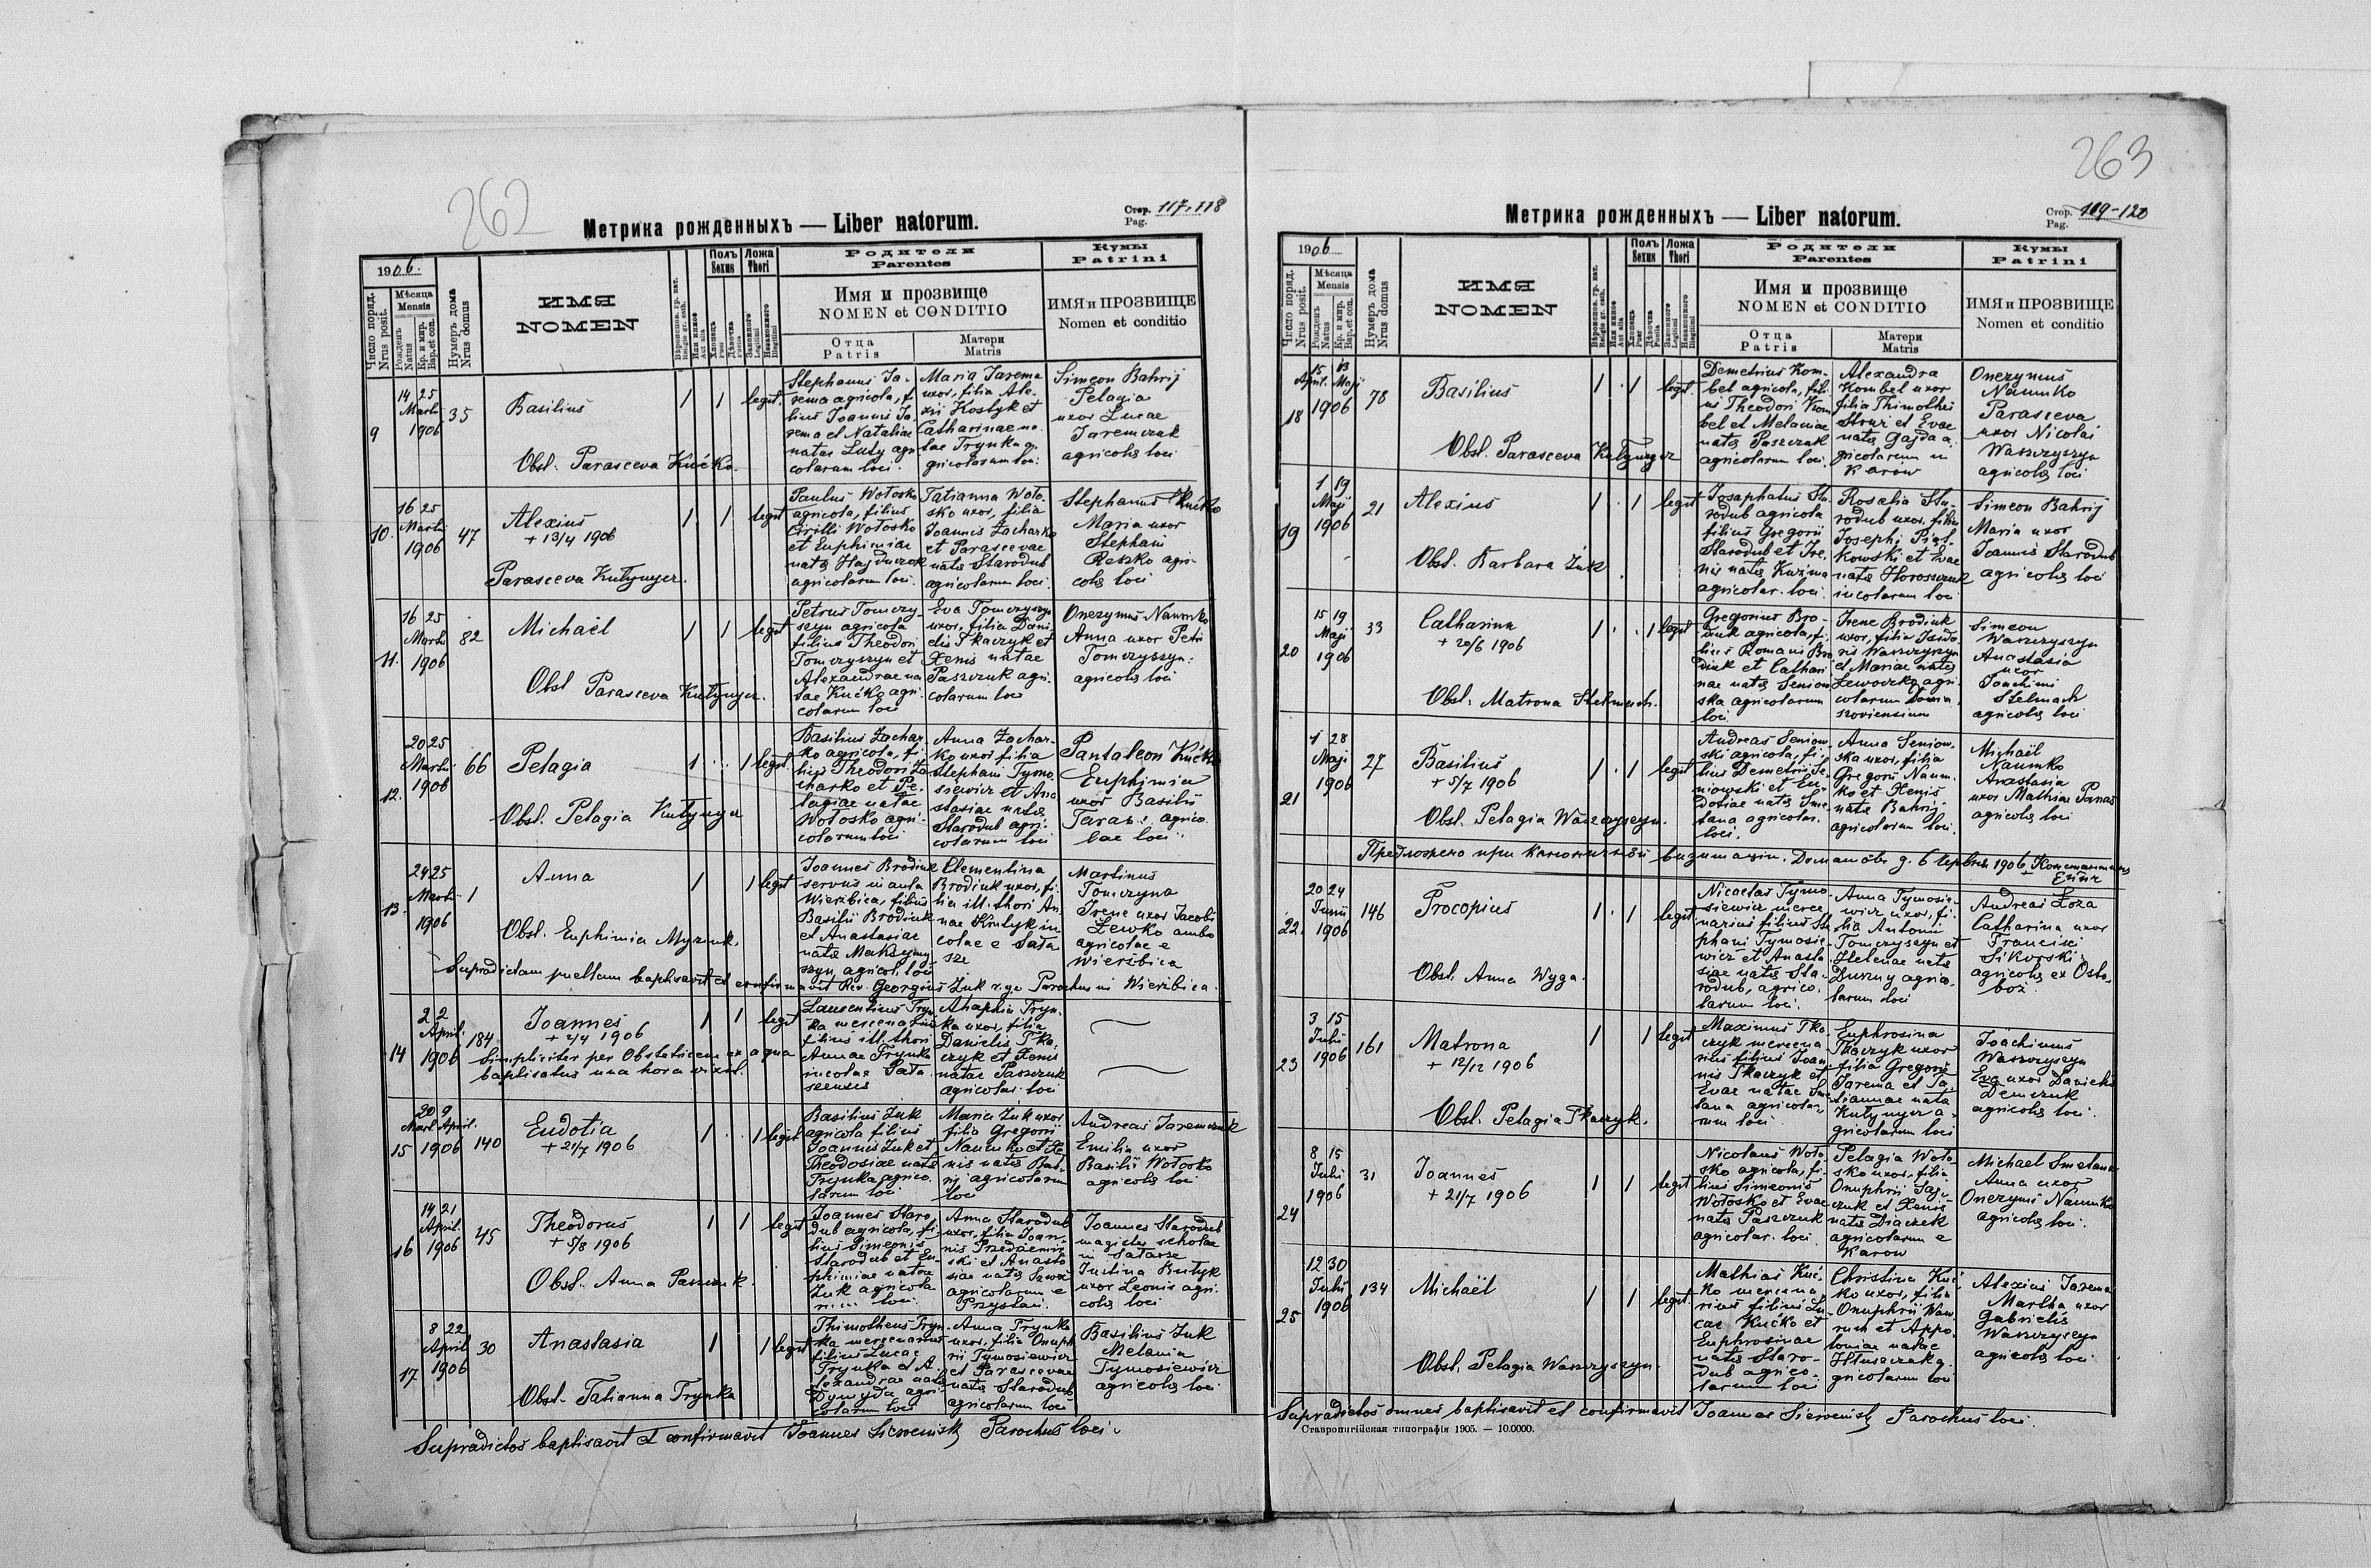 262
Метрика рожденныхъ — Liber natorum.
Стор. 117-118
Pag.
1906.
Число поряд.
Nrus posit.
Мѣсяца
Mensis
Рожденъ
Natus
Кр. и мир.
Bap. et con.
Нумеръ дома
Nrus domus
ИМЯ
NOMEN
Полъ
Sexus
Ложа
Thori
Родители
Parentes
Имя и прозвище
NOMEN et CONDITIO
Отца
Patris
Матери
Matris
Кумы
Patrini
ИМЯ и ПРОЗВИЩЕ
Nomen et conditio
9
14 25
Martii
1906
35
Basilius
Obst. Parasceva Kućko.
1 1 legit.
Stephanus Ja-
rema agricola, f
lius Joannis Ja
rema et Nataliae
natae Luty agri
colarum loci.
Maria Jarema
uxor, filia Ale-
xii Kostyk et
Catharinae na
tae Trynka a
gricolarum loci
Simeon Bahrij
Pelagia
uxor Lucae
Jaremczuk
agricolae loci
10.
16 25
Martii
1906
47
Alexius
+ 13/4 1906
Parasceva Kutynyez.
1 1 legit
Paulus Wołosko
agricola, filius
Cirilli Wołosko
et Euphimiae
natae Hajduczok
agricolarum loci.
Tatianna Woło-
sko uxor, filia
Joannis Zacharko
et Parascevae
natae Starodub
agricolarum loci.
Stephanus Kućko
Maria uxor
Stephani
Reszko agri-
colae loci
11.
16 25
Martii
1906
82
Michaël
Obst Parasceva Kutynyez.
1 1 legit
Petrus Tomczy-
szyn agricola
filius Theodori
Tomczyszyn et
Alexandrae na
tae Kućko agri-
colarum loci
Eva Tomczyszyn
uxor, filia Dani
elis Tkaczyk et
Xenis natae
Paszczuk agri-
colarum loci
Onezymus Naumko
Anna uxor Petri
Tomczyszyn
agricolae loci
12.
20 25
Martii
1906
66
Pelagia
Obst. Pelagia Kutynyez
1 1 legit
Basilius Zachar-
ko agricola, fi-
lius Theodori Za
charko et Pe-
lagiae natae
Wołosko agri-
colarum loci
Anna Zachar-
ko uxor filia
Stephani Tymo
siewicz et Ana
stasiae natae
Starodub agri-
colarum loci
Pantaleon Kućko
Euphimia
uxor Basilii
Taras agrico
lae loci
13.
24 25
Martii
1906
1
Anna
Obst. Euphimia Myziuk.
1 1 legit
Joannes Brodiuk
servus in aula
Wierzbica, filius
Basilii Brodiuk
et Anastasiae
natae Maksymy
szyn agricol. loci
Clementina
Brodiuk uxor, fi-
lia ill. thori An
nae Kintyk in
colae e Sała
sze
Martinus
Tomczyna
Irene uxor Jacobi
Lewko ambo
agricolae e
Wierzbica
Supradictam puellam baptisavit et confirmavit Rev. Georgius Żuk r. gr. Parochus in Wierzbica.
14
2 2
April.
1906
184
Joannes
+ 2/4 1906
Simpliciter per Obstetricem ex aqua
baptisatus una hora vixit.
1 1 legit
Laurentius Tryn
ka mercenarius
filius ill. thori
Annae Trynka
incolae Sała
szensis
Ahaphia Tryn-
ka uxor, filia
Danielis Tka-
czyk et Xenis
natae Paszczuk
agricolar. loci
15
20 9
Mart. April.
1906
140
Eudotia
+ 21/7 1906
1 1 legit
Basilius Żuk
agricola filius
Joannis Żuk et
Theodosiae natae
Trynka agrico
larum loci
Maria Żuk uxor
filia Gregorii
Naumko et Xe
nis natae Bah-
rij agricolarum
loci
Andreas Jaremczuk
Emilia uxor
Basilii Wołosko
agricolae loci
16
14 21
April.
1906
45
Theodorus
+ 5/8 1906
Obst. Anna Paszczuk.
1 1 legit
Joannes Staro
dub agricola, fi
lius Simeonis
Starodub et Eu-
phimiae natae
Żuk agricola
rum loci.
Anna Starodub
uxor, filia Joan-
nis Przedzimir
ski et Anasta
siae natae Szwed
agricolarum e
Przystań.
Joannes Starodub
magister scholae
in Sałasze
Justina Butyk
uxor Leonis agri-
colae loci
17.
8 22
April
1906
30
Anastasia
Obst. Tatianna Trynka
1 1 legit
Thimotheus Tryn
ka mercenarius
filius Lucae
Trynka et A-
lexandrae natae
Dymyda agri-
colarum loci
Anna Trynka
uxor, filia Onuph
rii Tymosiewicz
et Parascevae
natae Starodub
agricolarum loci
Basilius Żuk
Melania
Tymosiewicz
agricolae loci
Supradictos baptisavit et confirmavit Joannes Sierociński Parochus loci.
263
Метрика рожденныхъ — Liber natorum.
Стор. 119-120
Pag.
1906
Число поряд.
Nrus posit.
Мѣсяца
Mensis
Рожденъ
Natus
Кр. и мир.
Bap. et con.
Нумеръ дома
Nrus domus
ИМЯ
NOMEN
Полъ
Sexus
Ложа
Thori
Родители
Parentes
Имя и прозвище
NOMEN et CONDITIO
Отца
Patris
Матери
Matris
Кумы
Patrini
ИМЯ и ПРОЗВИЩЕ
Nomen et conditio
18
15 13
April. Maji
1906
78
Basilius
Obst. Parasceva Kutynyez
1 1 legit.
Demetrius Kom-
bel agricola, fili-
us Theodori Kom
bel et Melaniae
natae Paszczuk
agricolarum loci
Alexandra
Kombel uxor
filia Thimothei
Struz et Evae
natae Gajda a-
gricolarum in
Karów
Onezymus
Naumko
Parasceva
uxor Nicolai
Waszczyszyn
agricolae loci
19
1 19
Maji
1906
21
Alexius
Obst. Barbara Żuk
1 1 legit
Josaphatus Sta
rodub agricola
filius Gregorii
Starodub et Ire
nis natae Kuzma
agricolar. loci.
Rosalia Sta-
rodub uxor, filia
Josephi Piąt-
kowski et Evae
natae Horoszczuk
incolarum loci
Simeon Bahrij
Maria uxor
Joannis Starodub
agricolae loci
20
15 19
Maji
1906
33
Catharina
+ 20/6 1906
Obst. Matrona Stelmach.
1 1 legit
Gregorius Bro-
diuk agricola, fi-
lius Romani Bro
diuk et Cathari
nae natae Seniow
ska agricolarum
loci.
Irene Brodiuk
uxor, filia Isido
ris Waszczyszyn
et Mariae natae
Lewoczko agri-
colarum Doma
szoviensium
Simeon
Waszczyszyn
Anastasia
uxor
Joachimi
Stelmach
agricolae loci
21
1 28
Maji
1906
27
Basilius
+ 5/7 1906
Obst. Pelagia Waszczyszyn.
1 1 legit
Andreas Seniow-
ski agricola, fi-
lius Demetrii Se
niowski et Eu-
dotiae natae Sme
tana agricolar.
loci.
Anna Seniow-
ska uxor, filia
Gregorii Naum-
ko et Xenis
natae Bahrij
agricolarum loci.
Michaël
Naumko
Anastasia
uxor Mathiae Panas
agricolae loci
Предложено при каноничной визитаціи. Домашôвъ д. 6 Червня 1906.
22.
20 24
Junii
1906
146
Procopius
Obst. Anna Wyga.
1 1 legit
Nicaetas Tymo-
siewicz merce
narius filius Ste
phani Tymosie-
wicz et Anasta
siae natae Sta-
rodub, agrico-
larum loci.
Anna Tymosie-
wicz uxor, fi-
lia Antonii
Tomczyszyn et
Helenae natae
Durny agrico-
larum loci
Andreas Łoza
Catharina uxor
Francisci
Sikorski
agricolae ex Osto-
boż.
23
3 15
Julii
1906
161
Matrona
+ 12/12 1906
Obst. Pelagia Tkaczyk.
1 1 legit
Maximus Tka-
czyk mercena
rius filius Joan
nis Tkaczyk et
Evae natae Sme
tana agricola-
rum loci
Euphrosina
Tkaczyk uxor
filia Gregorii
Jarema et Ta
tiannae natae
Kutynyez a-
gricolarum loci
Joachimus
Waszczyszyn
Eva uxor Danielis
Demczuk
agricolae loci.
24
8 15
Julii
1906
31
Joannes
+ 21/7 1906
1 1 legit
Nicolaus Woło-
sko agricola, fi-
lius Simeonis
Wołosko et Evae
natae Paszczuk
agricolar. loci
Pelagia Woło-
sko uxor, filia
Onuphrii Saj-
czuk et Xenis
natae Diaczek
agricolarum e
Karow
Michael Smetana
Anna uxor
Onezymi Naumko
agricolae loci.
25
12 30
Julii
1906
134
Michaël
Obst. Pelagia Waszczyszyn.
1 1 legit.
Mathias Kuć-
ko mercena
rius filius Lu-
cae Kućko et
Euphrosinae
natae Staro-
dub agrico-
larum loci
Christina Kuć
ko uxor, filia
Onuphrii Waw
ruch et Appo
loniae natae
Hłuszczak a-
gricolarum loci
Alexius Jarema
Martha uxor
Gabrielis
Waszczyszyn
agricolae loci
Supradictos omnes baptisavit et confirmavit Joannes Sierociński Parochus loci.
Ставропигійская типографія 1905. — 10.0000.